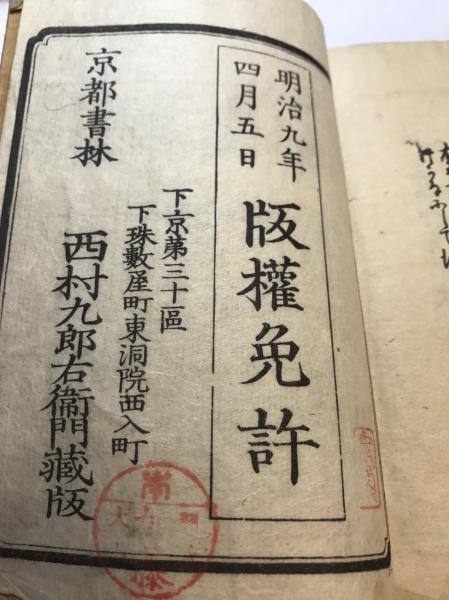 明治九年
四月五日
版權免許
下京第三十區
下珠數屋町東洞院西入町
京都書林
西村九郎右衞門藏版